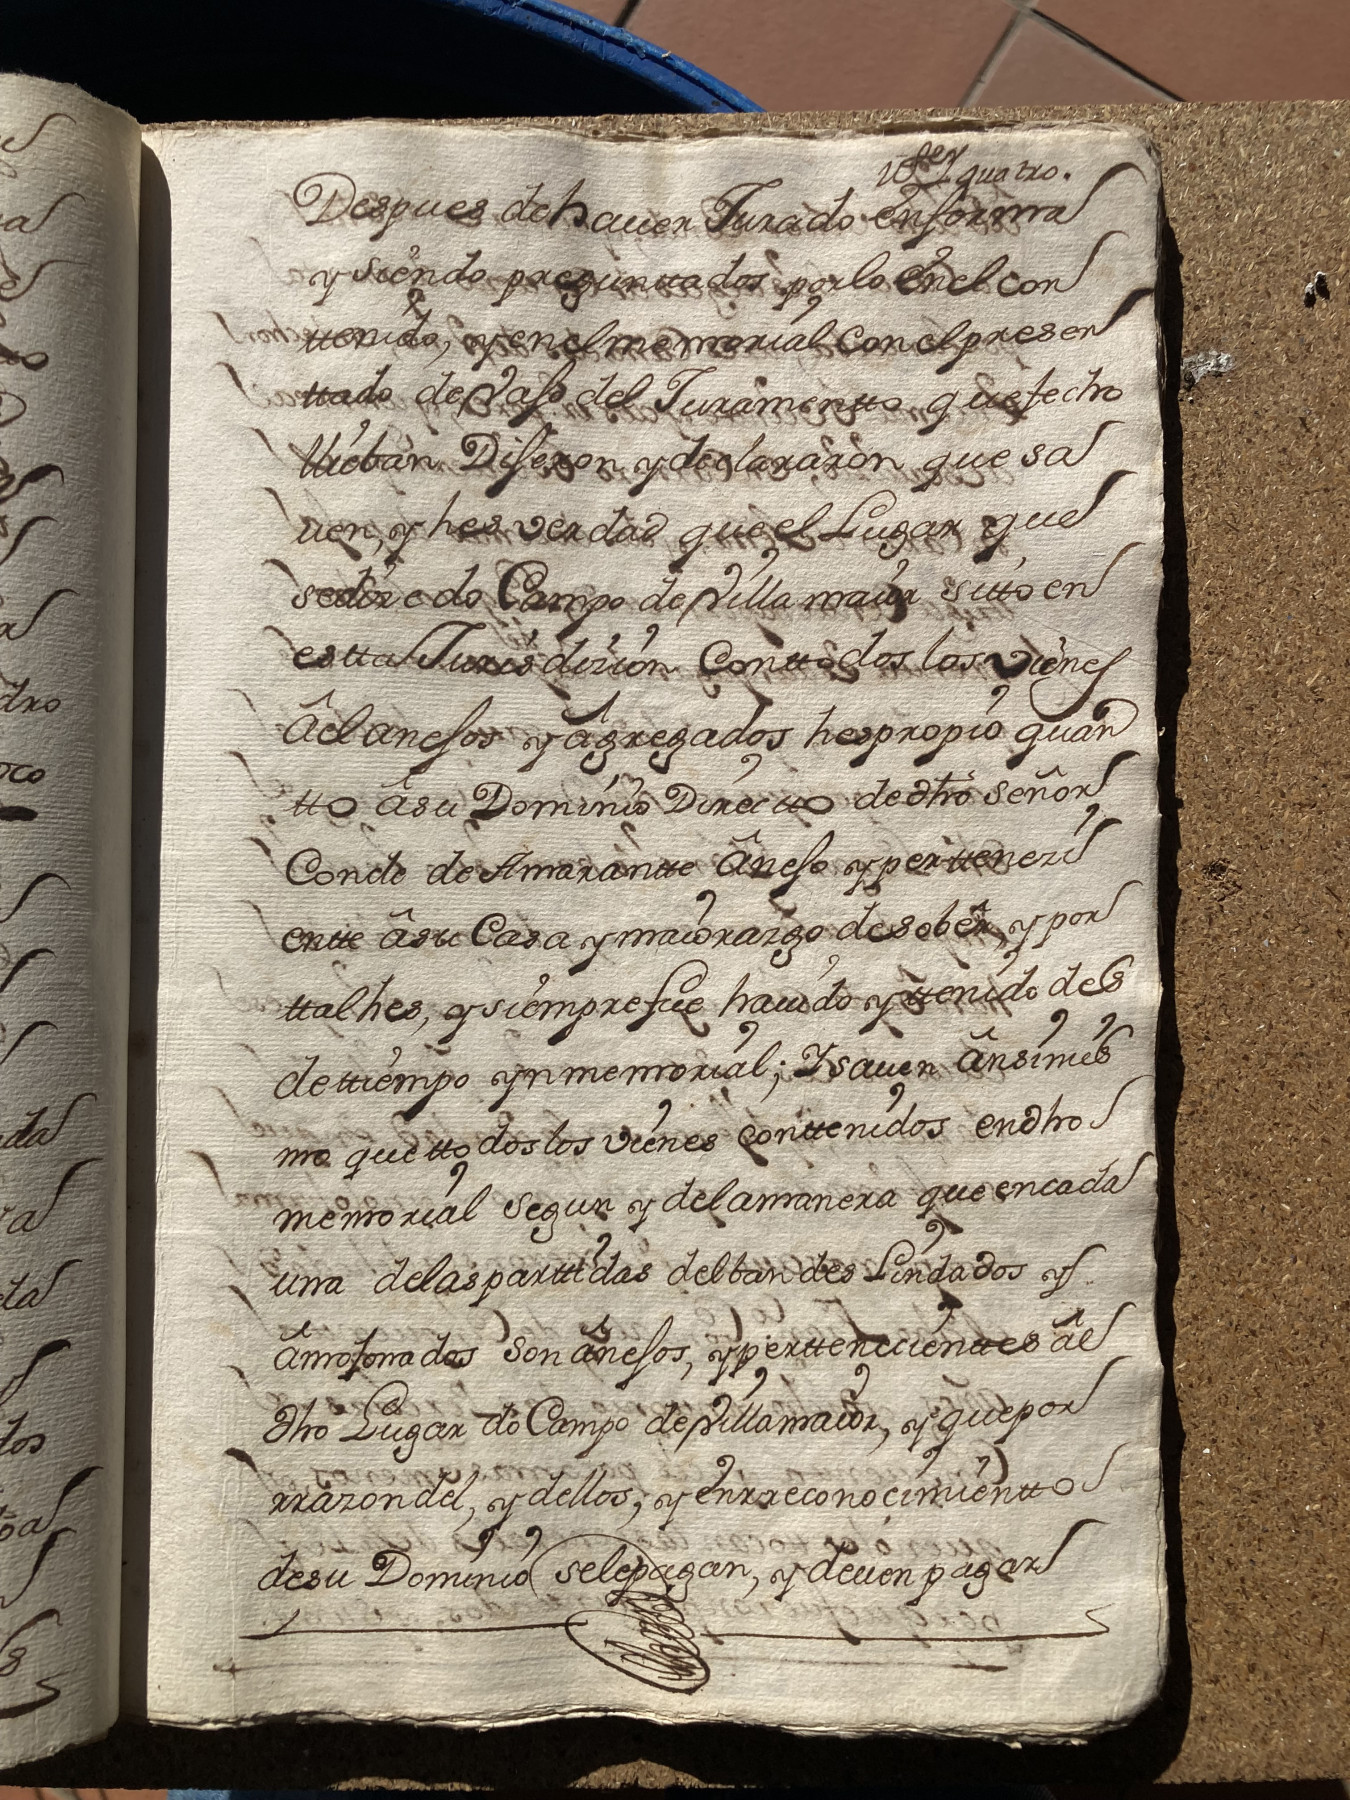 quatro.
Despues de hauer Jurado en forma
y siendo preguntados por lo en el con
ttenido, y en el memorial con el presen
ttado de vaso del Juramentto que fecho
lleban Diseron y declararon que sa
uen, y hes verdad que el Lugar que
se dize do Campo de Villamaior sitto en
estta Jurisdizion Con ttodos los vienes
âel anesos y âgregados hes propio quan
tto âsu Dominio Directto de dho señor
Conde de Amarantte âneso y perttenezi
entte âsu Casa y maiorazgo de sober, y por
ttal hes, y siempre fue hauido y ttenido des
de ttiempo ynmemorial; Y sauen ânsimis
mo que ttodos los vienes conttenidos en dho
memorial segun y de la manera que en cada
una de las parttidas de el ban deslindados y
âmofonados son ânesos, y perttenecienttes âl
dho Lugar do Campo de Villamaior, y que por
rrazon del, y dellos, y en rreconocimientto
de su Dominio se le pagan, y deuen pagar